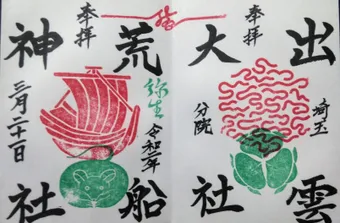 出雲
大社
奉拝
埼玉
分院
荒船
神社
奉拝
弥生
令和二年
三月二十日